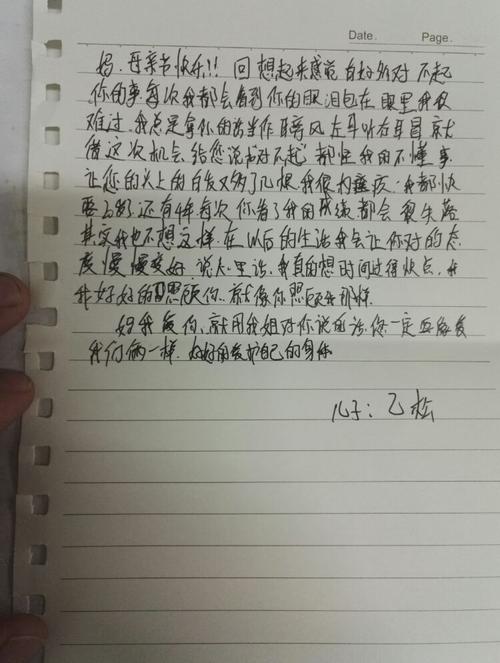 Date. Page.
妈.母亲节快乐!! 回想起来感觉自好多对不起
你的事每次我都会看到你的眼泪包在眼里我很
难过.我总是拿你的话当作耳旁风左耳听右耳冒就
借这次机会给您说声对不起都怪我的不懂事
让您的头上的白发又多了几根我很内疚.我都快
要 了.还有4年每次你看了我的成绩都会很失落
其实我也不想这样.在以后的生活我会让你对的态
度慢慢变好.说心里话.我真的想时间过得快点.
我好好的照顾你.就像你照顾我那样.
妈我爱你.就用我姐对你说的话.您一定要像爱
我们俩一样.好好的爱护自己的身体
儿子:乙松